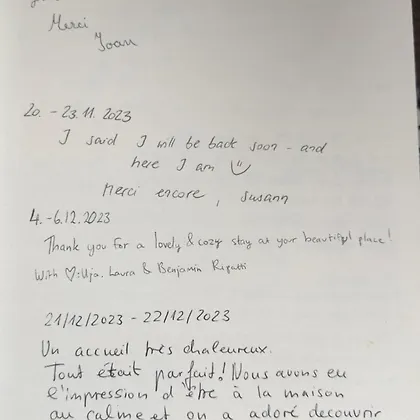 Merci
Joan
20. - 23.11.2023
I said I will be back soon - and
here I am
Merci encore, Susann
4.-6.12.2023
Thank you for a lovely & cozy stay at your beautiful place!
With ♡: Uja, Laura & Benjamin
21/12/2023 - 22/12/2023
Un accueil très chaleureux.
Tout était parfait! Nous avons eu
l'impression d'être à la maison
au calme et on a adoré decouvrir